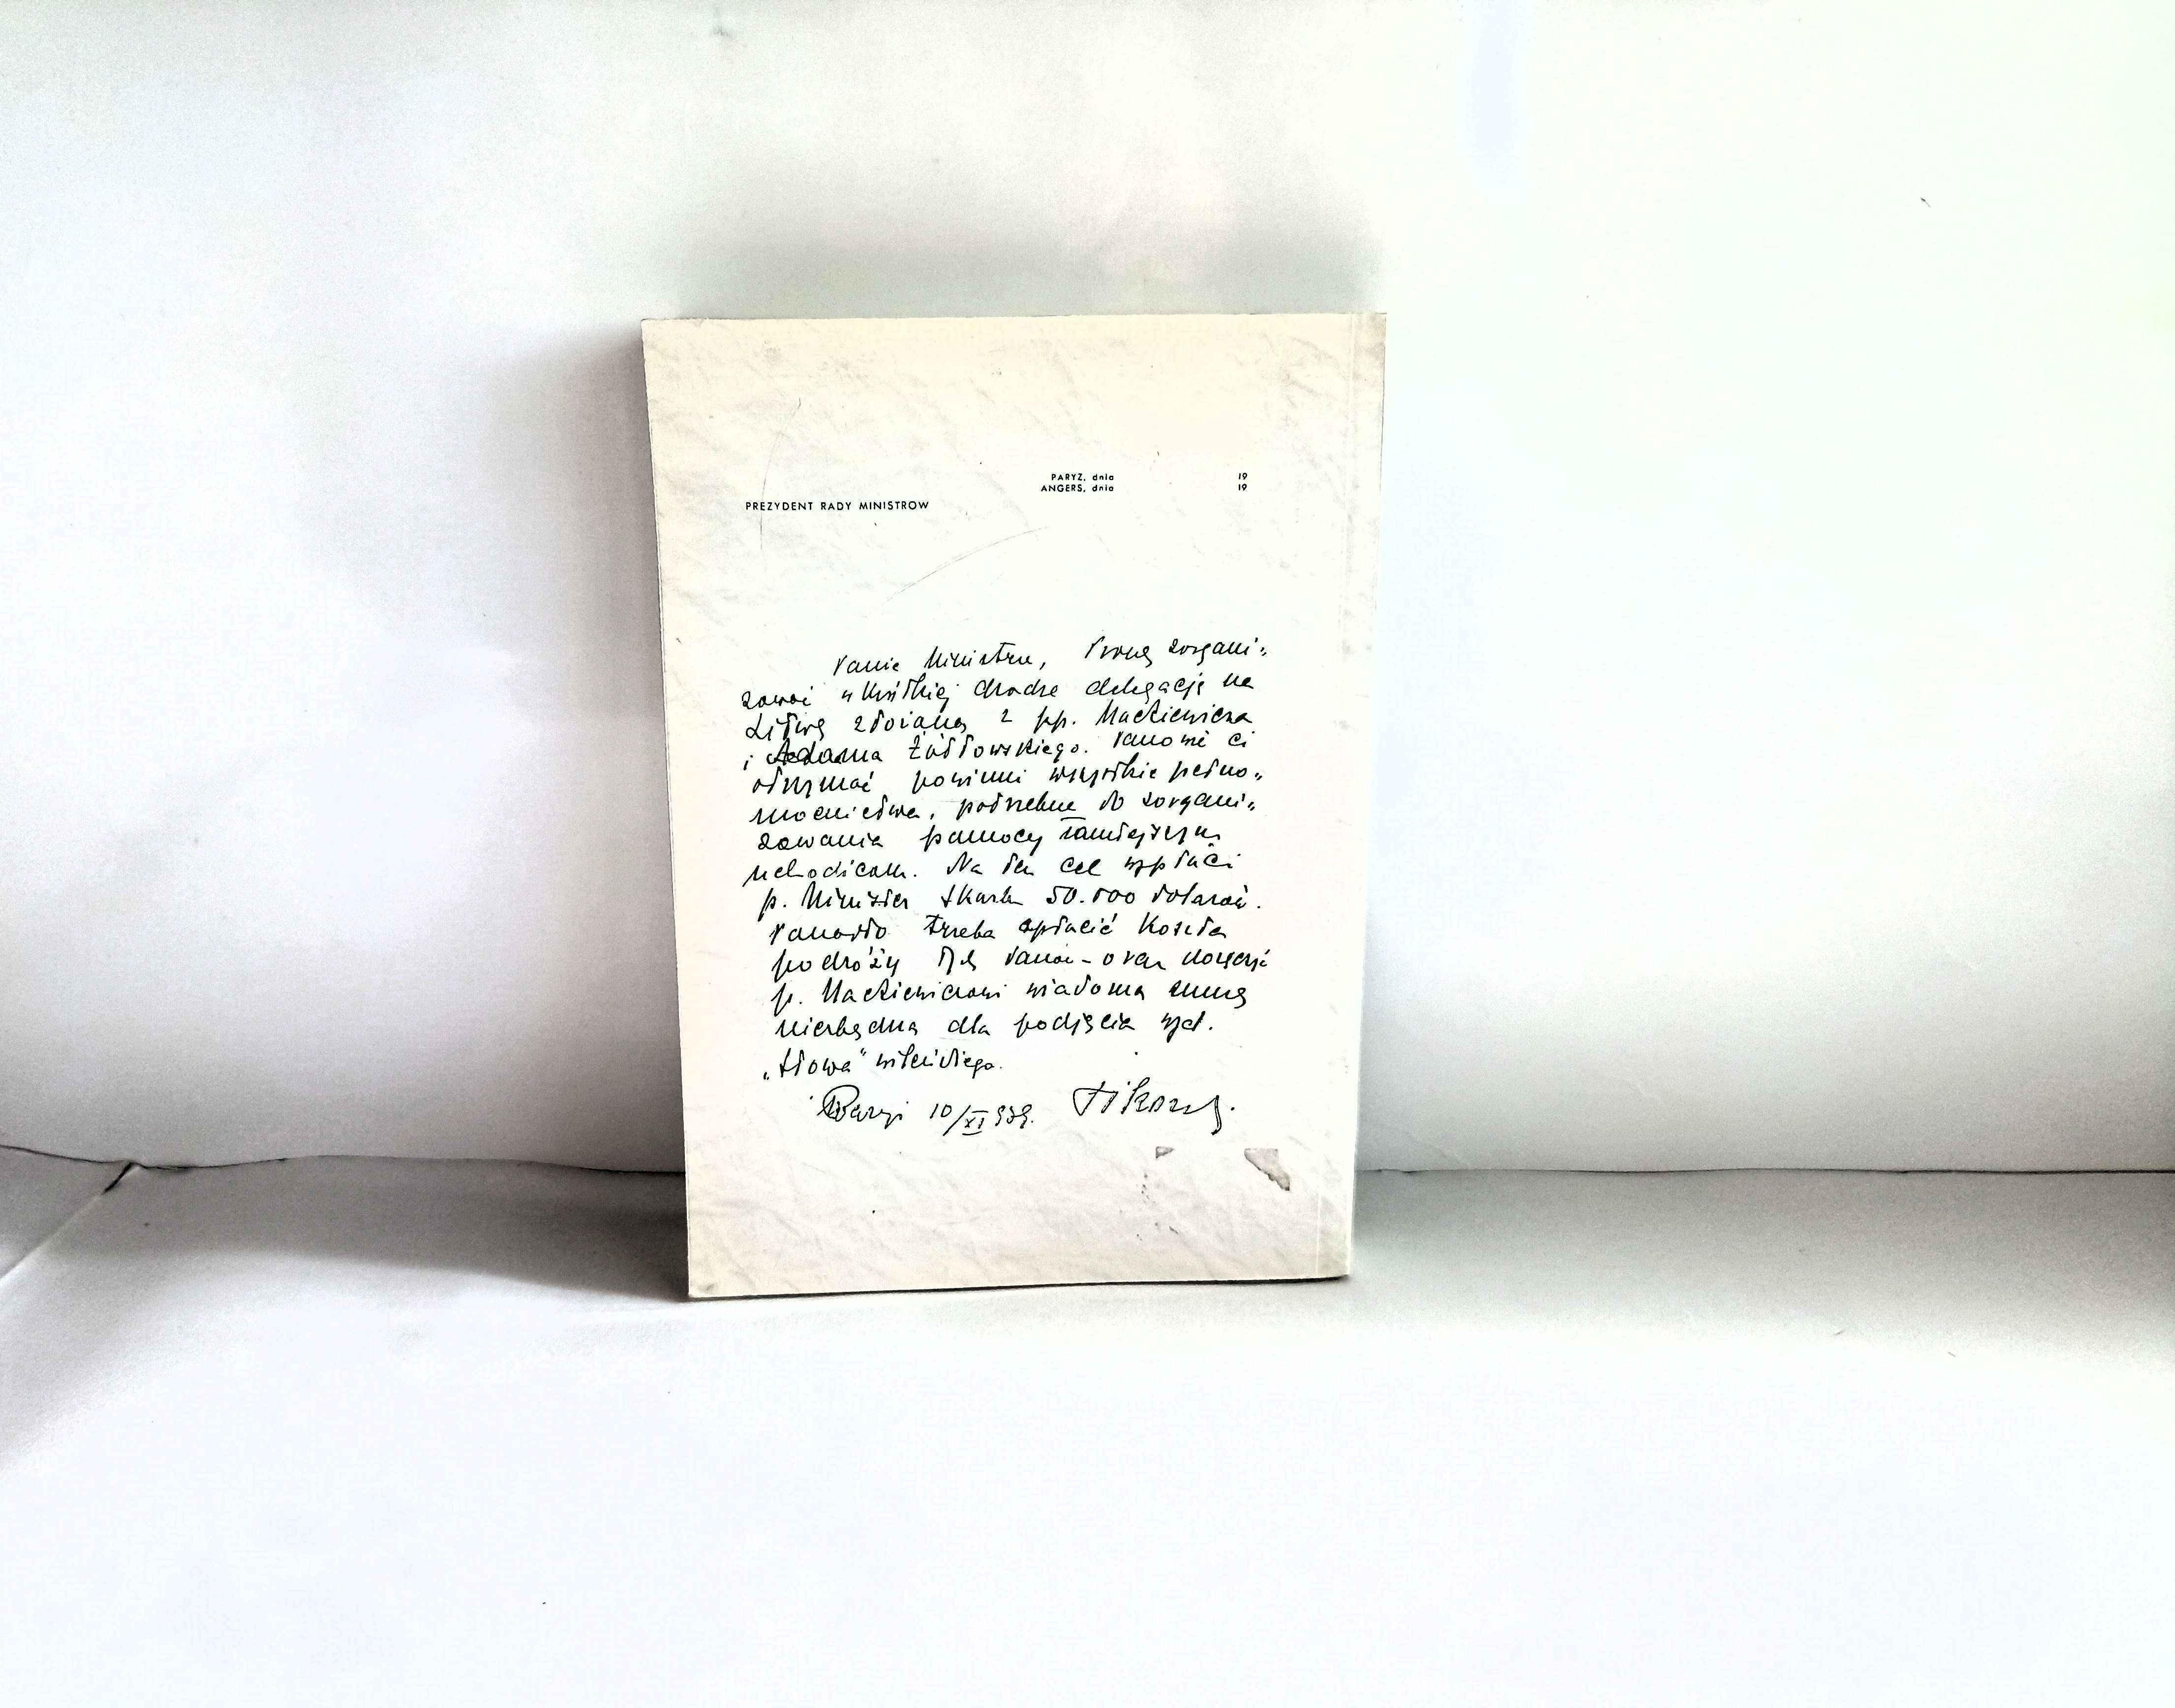 PARYZ, dnia 19
ANGERS, dnia 19
PREZYDENT RADY MINISTROW
Panie Ministrze, Proszę zorgani-
zować w krótkiej drodze delegację na
Litwę złożoną z pp. Mackiewicza
i Adama Żółtowskiego. Panowie ci
otrzymać powinni wszystkie pełno-
mocnictwa, potrzebne do zorgani-
zowania pomocy tamtejszym
uchodźcom. Na ten cel wypłaci
p. Minister Skarbu 50.000 dolarów.
Ponadto trzeba opłacić koszta
podróży tych Panów - oraz
p. Mackiewiczowi wiadomą sumę
niezbędną dla podjęcia wyd.
„Słowa" wileńskiego.
Paryż 10/XI 939. Sikorski